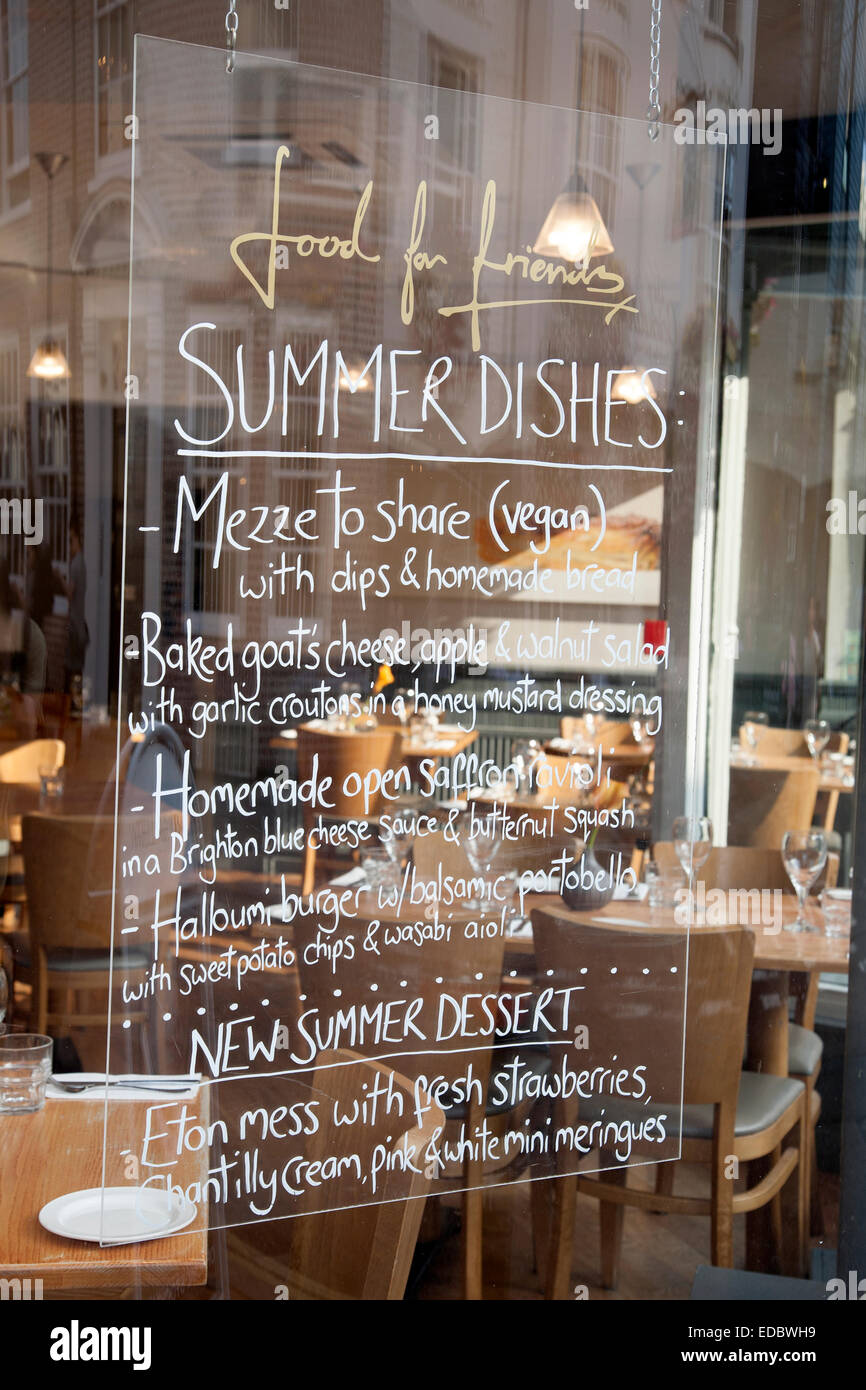 food for friends
SUMMER DISHES:
- Mezze to share (vegan)
with dips & homemade bread
- Baked goat's cheese, apple & walnut salad
with garlic croutons in a honey mustard dressing
- Homemade open saffron ravioli
in a Brighton blue cheese sauce & butternut squash
- Halloumi burger w/balsamic portobello
with sweet potato chips & wasabi aioli
NEW SUMMER DESSERT
- Eton mess with fresh strawberries,
Chantilly cream, pink & white mini meringues
alamy
Image ID: EDBWH9
www.alamy.com